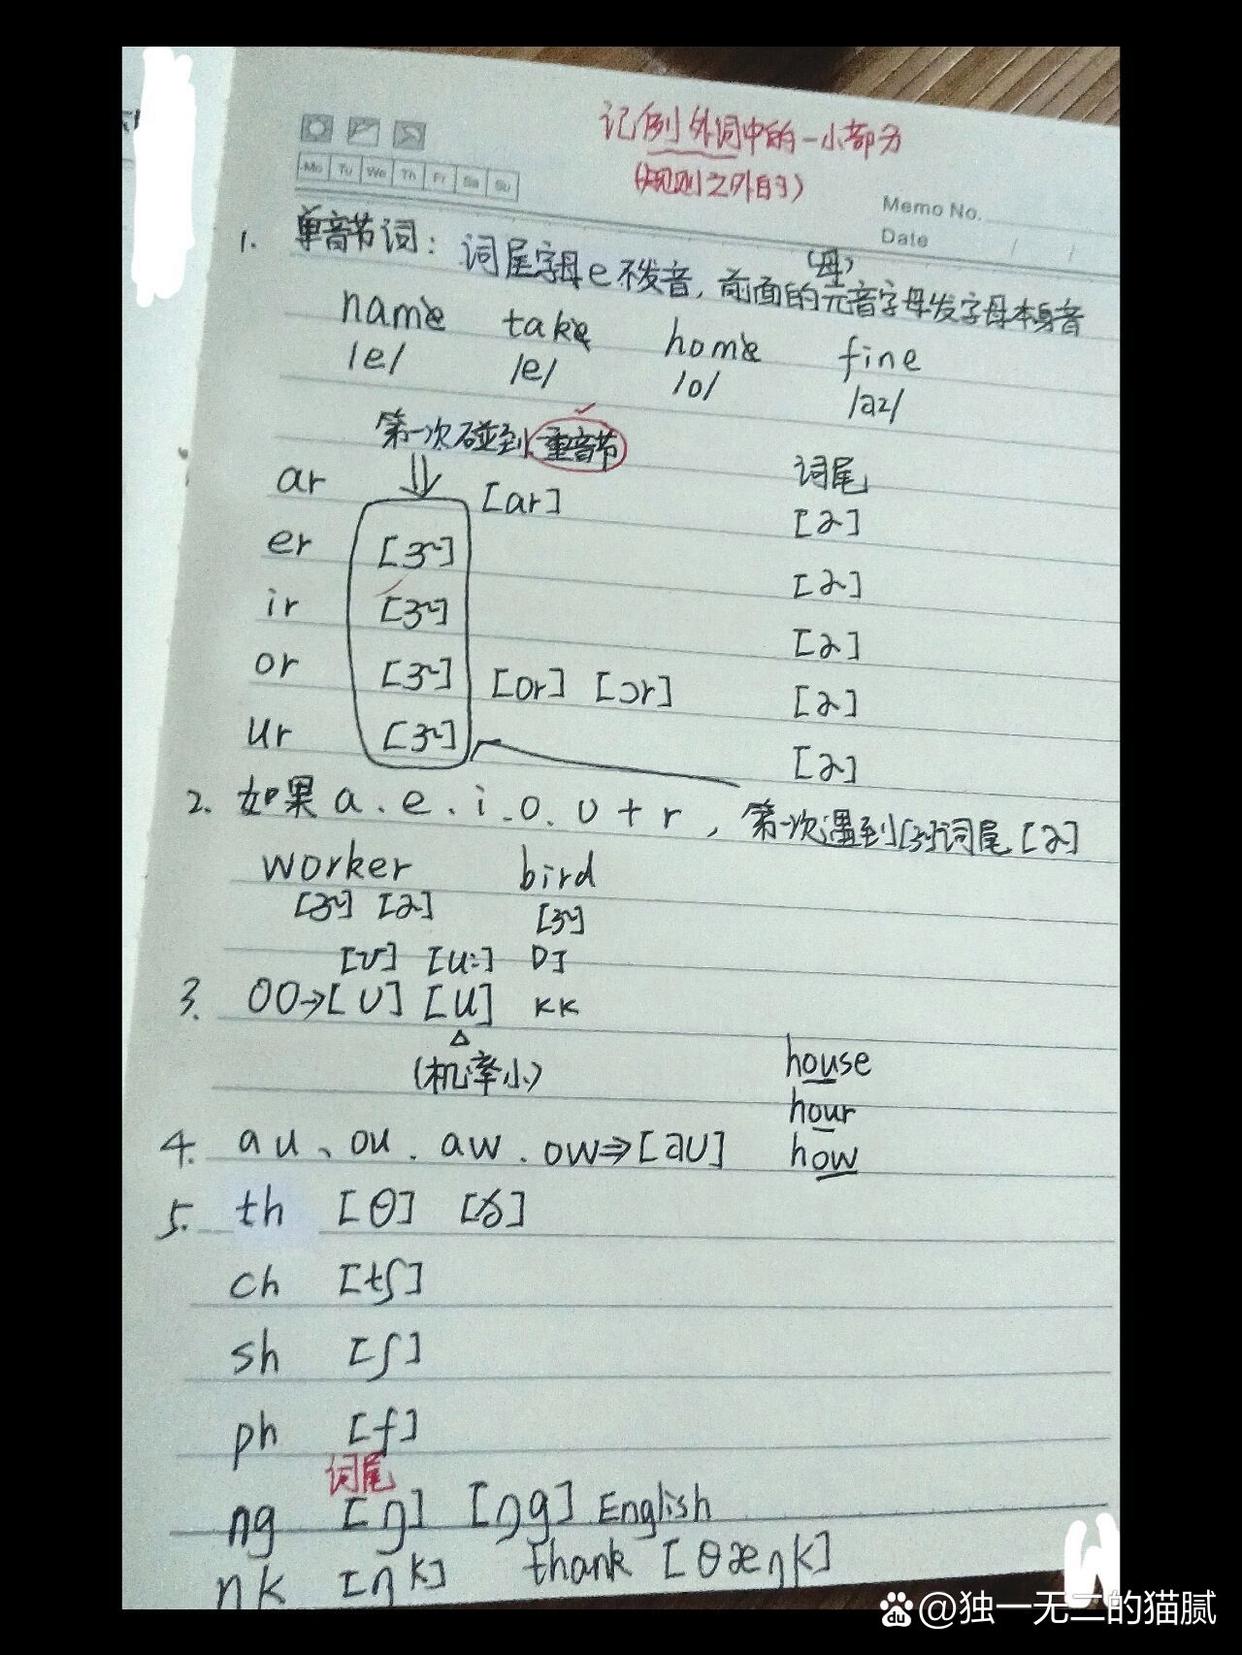 记例外词中的一小部分
(规则之外的)
Mo Tu We Th Fr Sa Su
Memo No.
Date / /
1. 单音节词：词尾字母e不发音，前面的元(母)音字母发字母本身音
name take home fine
/e/ /e/ /o/ /aɪ/
第一次碰到重音节 ✓
⇓ 词尾
ar [ar] [ɚ]
er [ɝ] [ɚ]
ir [ɝ] [ɚ]
or [ɝ] [or] [ɔr] [ɚ]
ur [ɝ] [ɚ]
2. 如果a.e.i.o.u+r，第一次遇到[ɝ]词尾[ɚ]
worker bird
[ɝ] [ɚ] [ɝ]
[ʊ] [u:] DJ
3. oo→[ᴜ] [u] KK
△
(机率小)
house
hour
4. au、ou.aw.ow⇒[aᴜ] how
5. th [θ] [ð]
ch [tʃ]
sh [ʃ]
ph [f]
词尾
ng [ŋ] [ŋg] English
nk [ŋk] thank [θæŋk]
du @独一无二的猫腻